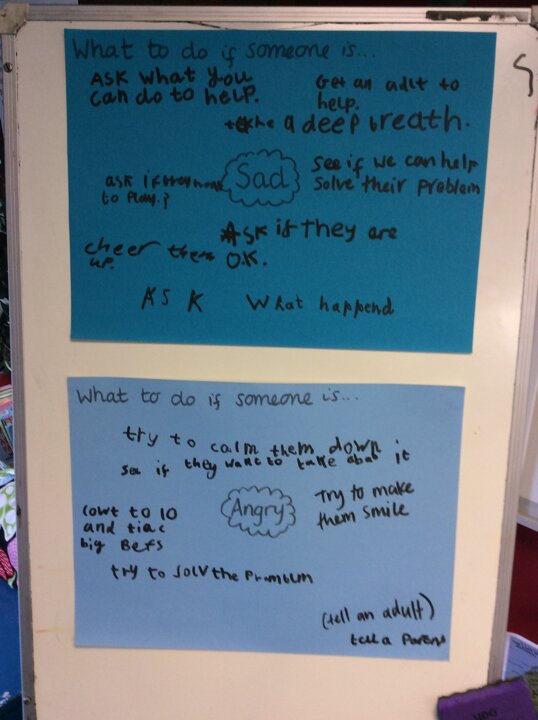 What to do if someone is...
ASK what you
can do to help.
Get an adlt to
help.
take a deep breath.
Sad
see if we can help
solve their problem
ask if they
to play.?
ASK if they are
O.K.
cheer them
up.
ASK What happend
What to do if someone is...
try to calm them down
see if they want to take abat it
cowt to 10
and tiac
big Befs
Angry
Try to make
them smile
try to solv the Promblm
(tell an adult)
tell a Parent